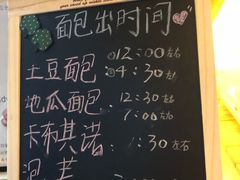 面包出时间
012:00左右
土豆面包 04:30左右
地瓜面包 12:30左右
7:00左右
卡布其诺 1:30左右
泡芙